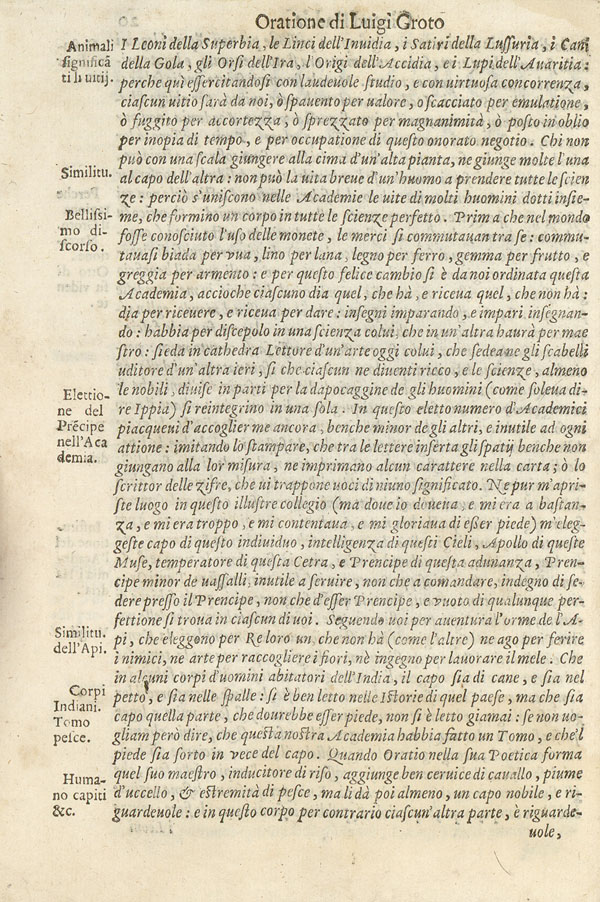 Oratione di Luigi Groto
Animali
significā
ti li uitij.
I Leoni della Superbia, le Linci dell'Inuidia, i Satiri della Lussuria, i Cani
della Gola, gli Orsi dell'Ira, l'Origi dell'Accidia, e i Lupi dell'Auaritia:
perche quì essercitandosi con laudeuole studio, e con uirtuosa concorrenza,
ciascun uitio sarà da noi, ò spauento per ualore, o scacciato per emulatione,
ò fuggito per accortezza, ò sprezzato per magnanimità, ò posto in oblio
per inopia di tempo, e per occupatione di questo onorato negotio. Chi non
può con una scala giungere alla cima d'un'alta pianta, ne giunge molte l'una
Similitu.
al capo dell'altra: non può la uita breue d'un'huomo a prendere tutte le scien
ze: perciò s'uniscono nelle Academie le uite di molti huomini dotti insie-
Bellissi-
mo di-
scorso.
me, che formino un corpo in tutte le scienze perfetto. Prima che nel mondo
fosse conosciuto l'uso delle monete, le merci si commutauan tra se: commu-
tauasi biada per vua, lino per lana, legno per ferro, gemma per frutto, e
greggia per armento: e per questo felice cambio si è da noi ordinata questa
Academia, accioche ciascuno dia quel, che hà, e riceua quel, che non hà:
dia per riceuere, e riceua per dare: insegni imparando, e impari insegnan-
do: habbia per discepolo in una scienza colui, che in un'altra haurà per mae
stro: sieda in cathedra Lettore d'un'arte oggi colui, che sedea ne gli scabelli
uditore d'un'altra ieri, sì che ciascun ne diuenti ricco, e le scienze, almeno
Elettio-
ne del
Prēcipe
nell'Aca
demia.
le nobili, diuise in parti per la dapocaggine de gli huomini (come soleua di-
re Ippia) si reintegrino in una sola. In questo eletto numero d'Academici
piacqueui d'accoglier me ancora, benche minor de gli altri, e inutile ad ogni
attione: imitando lo stampare, che tra le lettere inserta gli spatij benche non
giungano alla lor misura, ne imprimano alcun carattere nella carta; ò lo
scrittor delle zifre, che ui trappone uoci di niuno significato. Ne pur m'apri-
ste luogo in questo illustre collegio (ma doue io doueua, e mi era a bastan-
za, e mi era troppo, e mi contentaua, e mi gloriaua di esser piede) m'eleg-
geste capo di questo indiuiduo, intelligenza di questi Cieli, Apollo di queste
Muse, temperatore di questa Cetra, e Prencipe di questa adunanza, Pren-
cipe minor de uassalli, inutile a seruire, non che a comandare, indegno di se-
dere presso il Prencipe, non che d'esser Prencipe, e vuoto di qualunque per-
fettione si troua in ciascun di uoi. Seguendo uoi per auentura l'orme de l'A-
Similitu.
dell'Api.
pi, che eleggono per Re loro un che non hà (come l'altre) ne ago per ferire
i nimici, ne arte per raccogliere i fiori, nè ingegno per lauorare il mele. Che
in alcuni corpi d'uomini abitatori dell'India, il capo sia di cane, e sia nel
Corpi
Indiani.
Tomo
pesce.
petto, e sia nelle spalle: si è ben letto nelle Istorie di quel paese, ma che sia
capo quella parte, che dourebbe esser piede, non si è letto giamai: se non uo-
gliam però dire, che questa nostra Academia habbia fatto un Tomo, e che'l
piede sia sorto in vece del capo. Quando Oratio nella sua Poetica forma
Huma-
no capiti
&c.
quel suo maestro, inducitore di riso, aggiunge ben ceruice di cauallo, piume
d'uccello, & estremità di pesce, ma li dà poi almeno, un capo nobile, e ri-
guardeuole: e in questo corpo per contrario ciascun'altra parte, è riguarde-
uole,